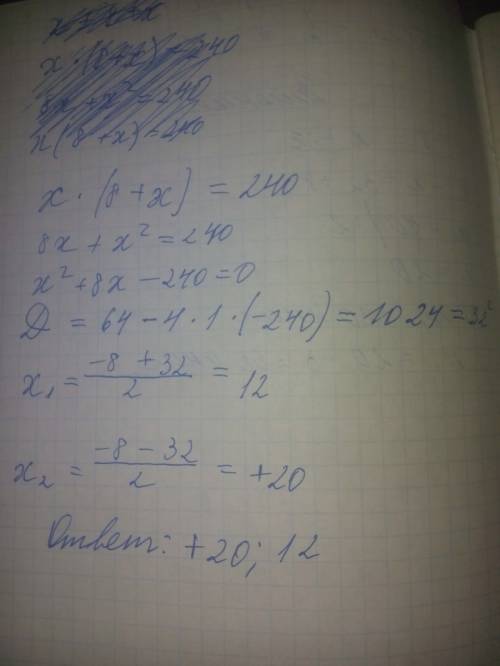 x · (8+x) = 240
8x + x² = 240
x(8+x) = 240
x · (8+x) = 240
8x + x² = 240
x² + 8x - 240 = 0
D = 64 - 4 · 1 · (-240) = 1024 = 32²
x₁ = (-8 + 32)/2 = 12
x₂ = (-8 - 32)/2 = +20
Ответ: +20; 12